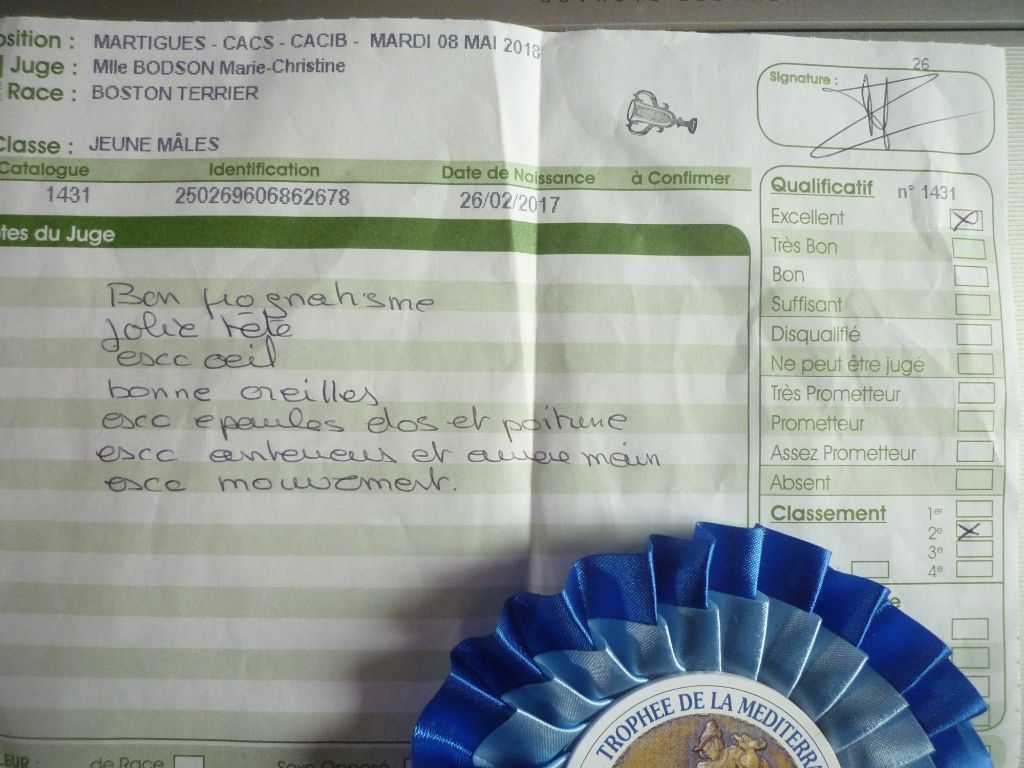 osition : MARTIGUES - CACS - CACIB - MARDI 08 MAI 2018
Juge : Mlle BODSON Marie-Christine
Race : BOSTON TERRIER
Classe : JEUNE MÂLES
26
Signature :
Catalogue Identification Date de Naissance à Confirmer
1431 250269606862678 26/02/2017
tes du Juge
Bon prognatisme
jolie tête
escc oeil
bonne oreilles
escc epaules dos et poitrine
escc et main
escc mouvement.
Qualificatif n° 1431
Excellent
Très Bon
Bon
Suffisant
Disqualifié
Ne peut être jugé
Très Prometteur
Prometteur
Assez Prometteur
Absent
Classement 1er
2e
3e
4e
TROPHEE DE LA MEDITERRA
EUR : de Race Sexe Opposé